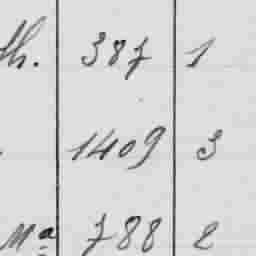 th. 387 1
1409 3
Ma 788 2